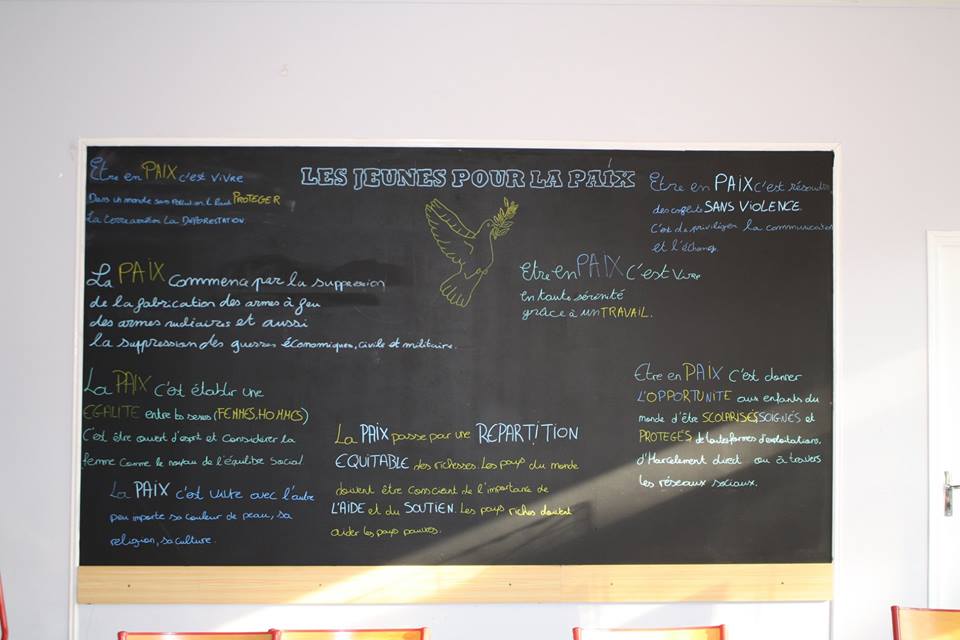 LES JEUNES POUR LA PAIX
Etre en PAIX c'est vivre
Dans un monde sans Pollution, il faut PROTEGER
La DEFORESTATION.
La PAIX Commence par la suppression
de la fabrication des armes à feu
des armes nucléaires et aussi
la suppression des guerres économiques, civile et militaire.
La PAIX C'est établir une
EGALITE entre les sexes (FEMMES, HOMMES)
C'est être ouvert d'esprit et Considérer la
femme comme le noyau de l'équilibre Social
La PAIX c'est vivre avec l'autre
peu importe sa couleur de peau, sa
religion, sa culture.
La PAIX passe par une REPARTITION
EQUITABLE des richesses. Les pays du monde
doivent être Conscient de l'importance de
L'AIDE et du SOUTIEN. Les pays riches doivent
aider les pays pauvres.
Etre en PAIX c'est résoudre
des conflits SANS VIOLENCE.
C'est de privilégier la communication
et l'échange.
Etre En PAIX C'est Vivre
en toute sérénité
grâce à un TRAVAIL.
Etre en PAIX C'est donner
L'OPPORTUNITE aux enfants du
monde d'être SCOLARISÉS, SOIGNÉS et
PROTEGES de toutes formes d'exploitations,
d'Harcelement direct ou à travers
les réseaux sociaux.